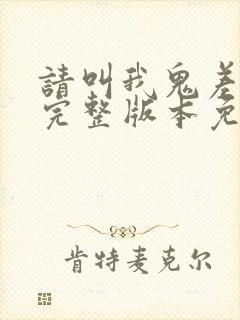 請叫我鬼差
完整版本免
肯特麦克尔